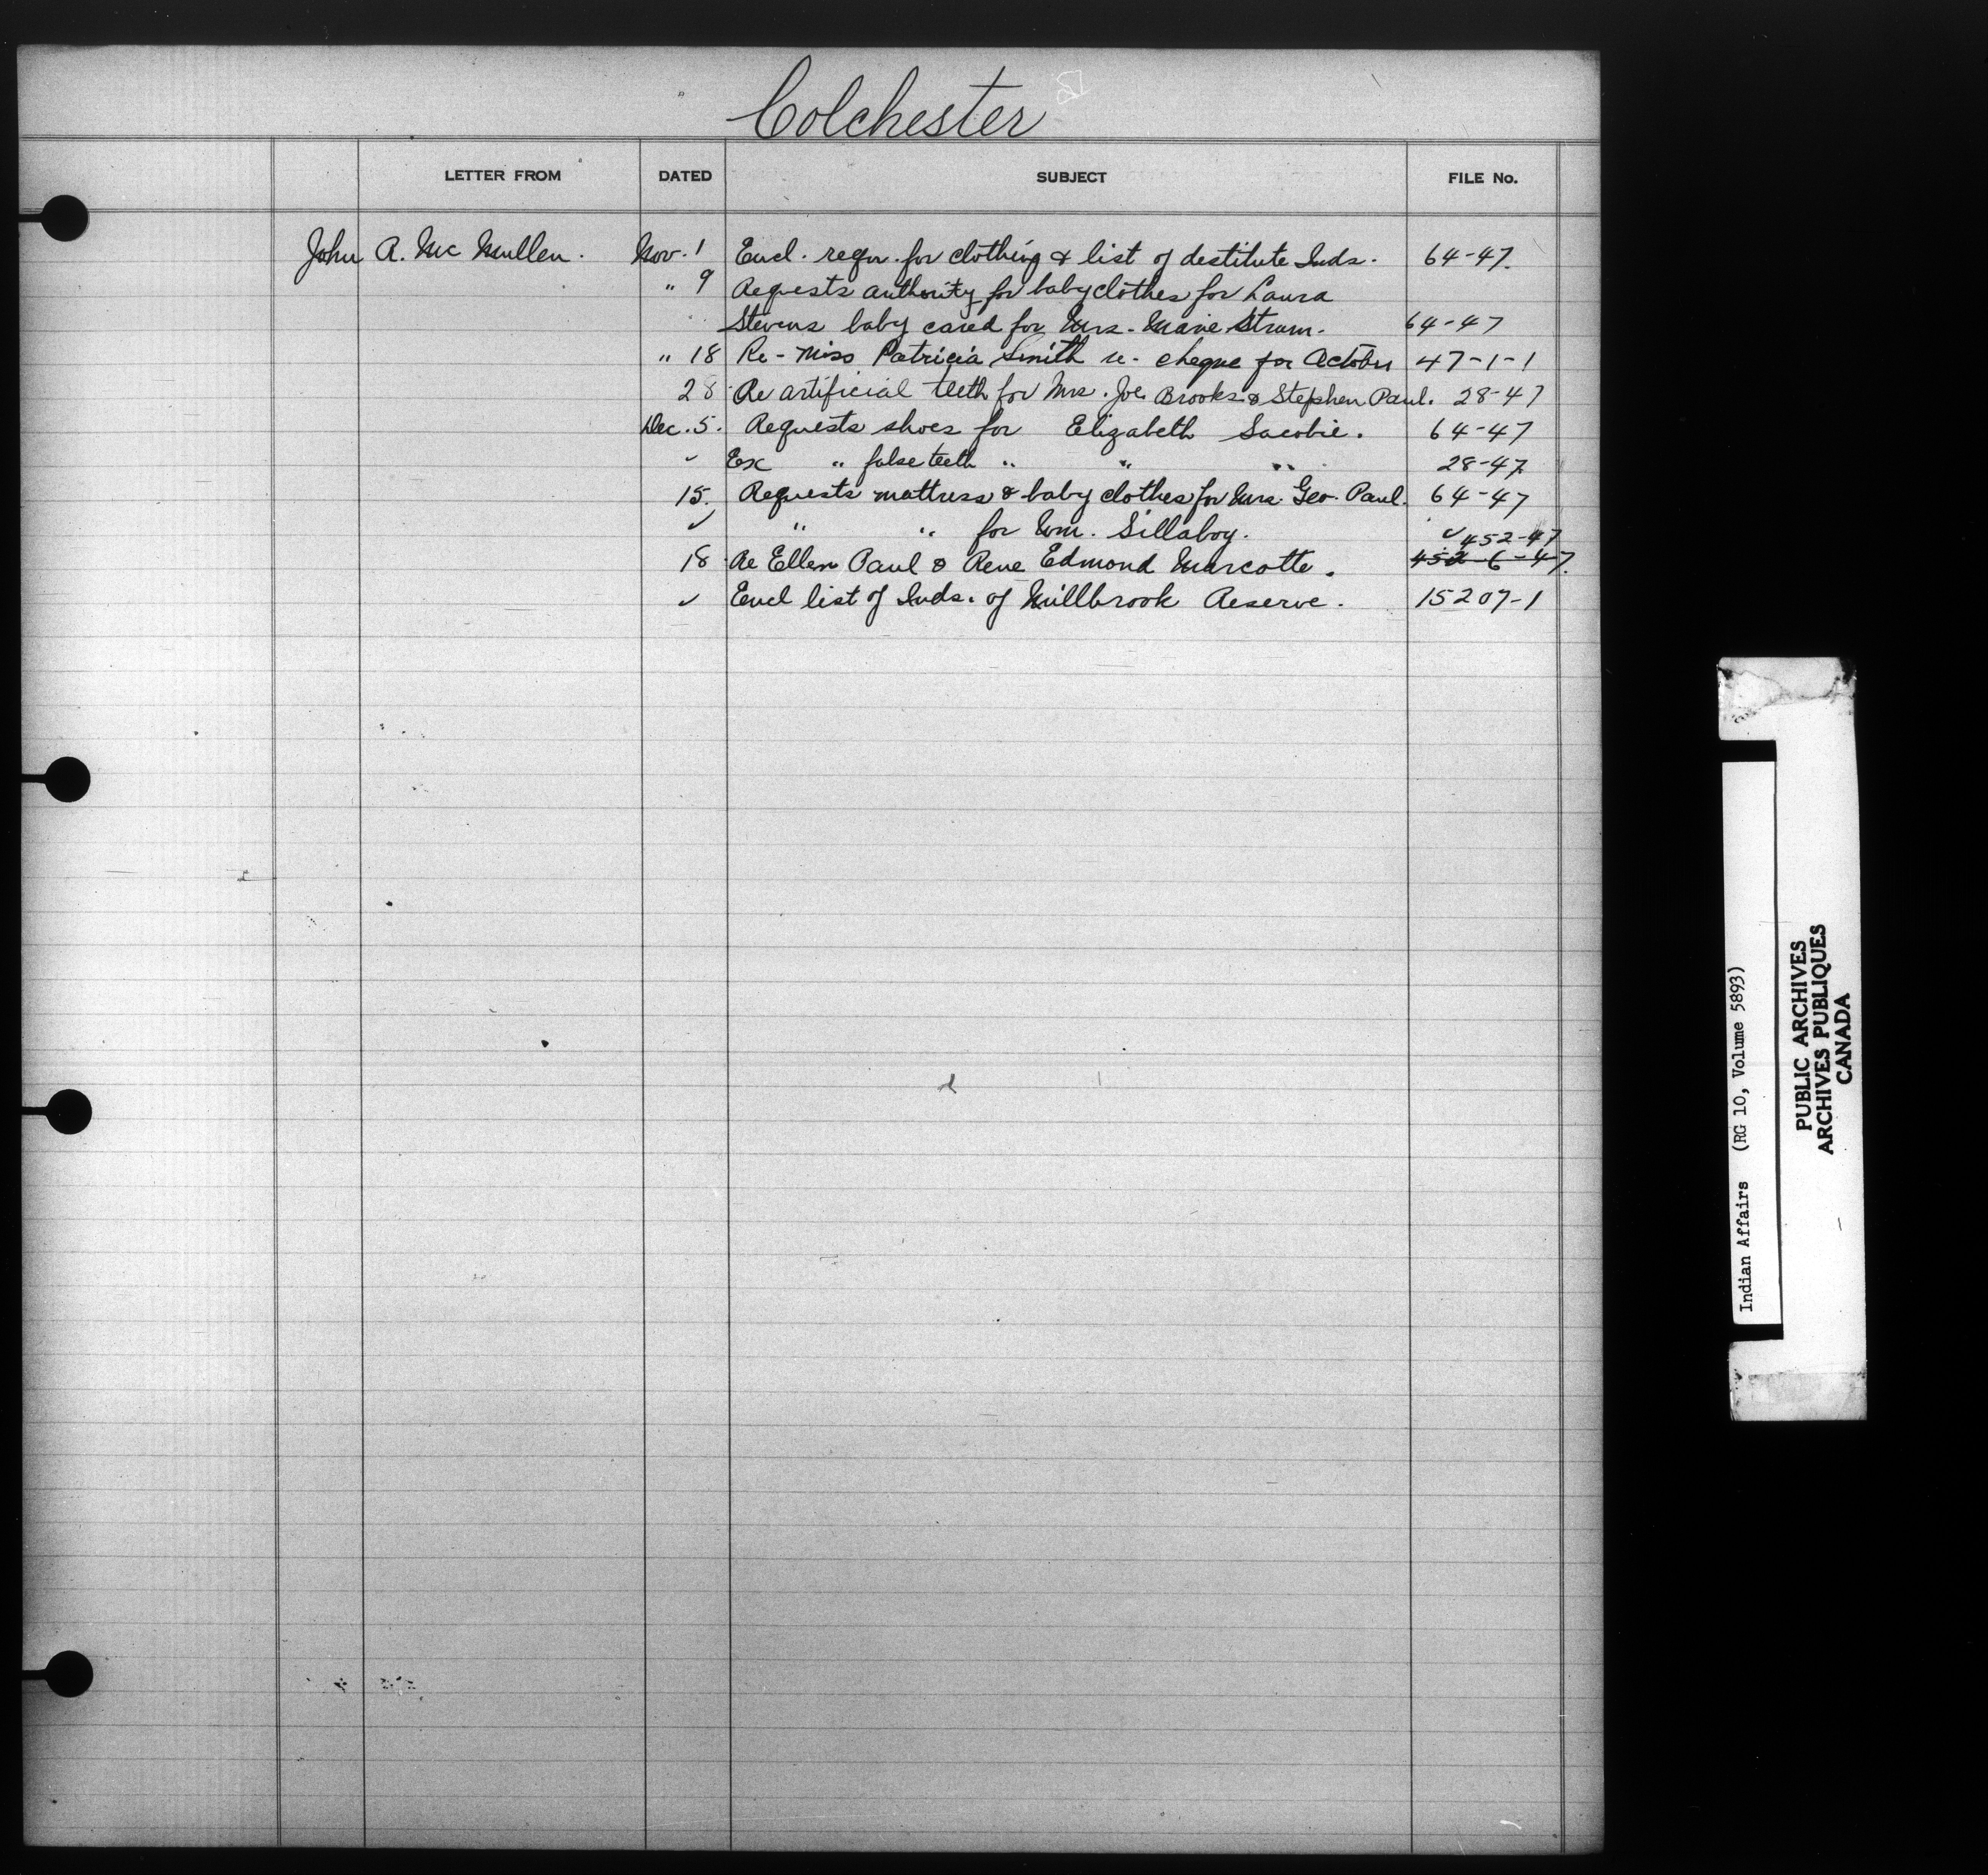 Colchester
LETTER FROM DATED SUBJECT FILE No.
John A. Mc Mullen. Nov. 1 Encl. reqn. for clothing & list of destitute Inds. 64-47.
" 9 Requests authority for baby clothes for Laura
Stevens baby cared for Mrs. Marie Strum. 64-47
" 18 Re - Miss Patricia Smith re. cheque for October 47-1-1
28 Re artificial teeth for Mrs. Joe Brooks & Stephen Paul. 28-47
Dec. 5. Requests shoes for Elizabeth Sacobie. 64-47
✓ Ex " false teeth " " " 28-47
15. Requests mattress & baby clothes for Mrs. Geo. Paul. 64-47
✓ " " for Wm. Sillaboy. ✓
452-47
18 Re Ellen Paul & Rene Edmond Marcotte. 452-6-47.
✓ Encl list of Inds. of Millbrook Reserve. 15207-1
Indian Affairs (RG 10, Volume 5893)
PUBLIC ARCHIVES
ARCHIVES PUBLIQUES
CANADA